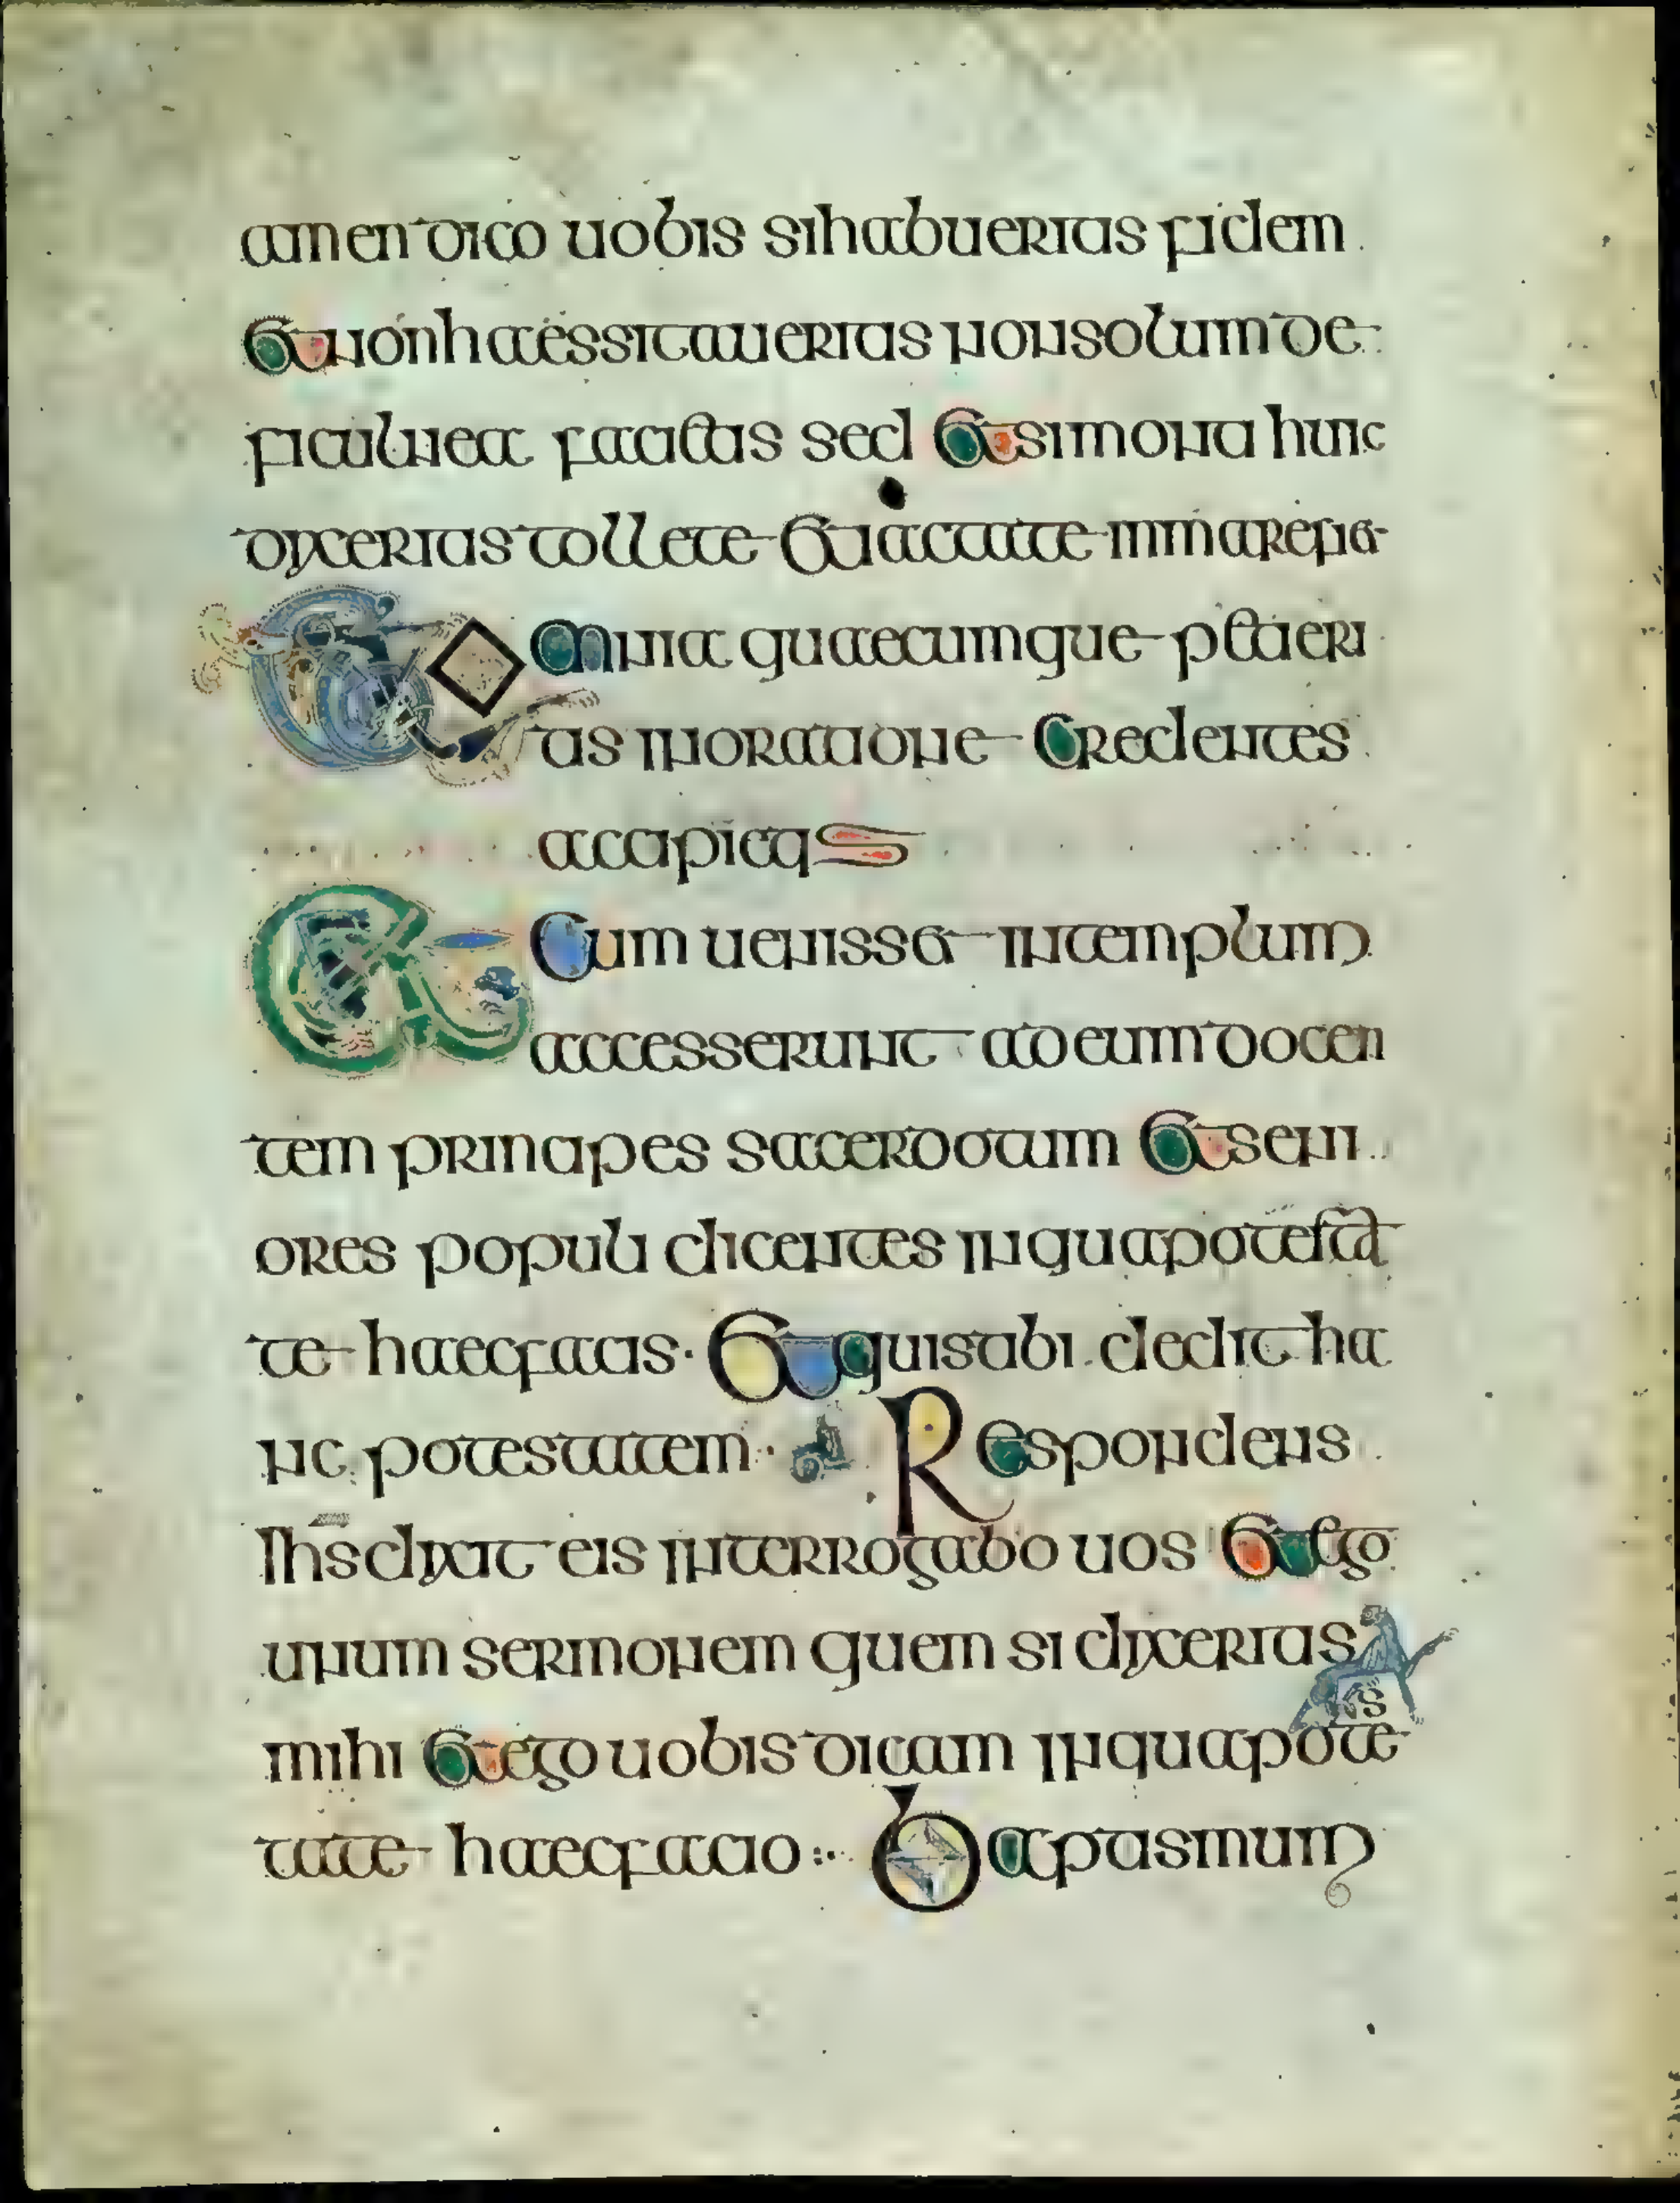 amen dico uobis si habueritis fidem
et non haessitaueritis non solum de
ficulnea facietis sed et si monti huic
dixeritis tollete et iactate in mare fiet
Et omnia quaecumque petieri
tis in oratione credentes
accipietis
Et cum uenisset in templum
accesserunt ad eum docen
tem principes sacerdotum et seni
ores populi dicentes in qua potesta
te haec facis · et quis tibi dedit ha
nc potestatem · Respondens
ihs dixit eis interrogabo uos et ego
unum sermonem quem si dixeritis
mihi et ego uobis dicam in qua potes
tate haec facio :· Baptismum